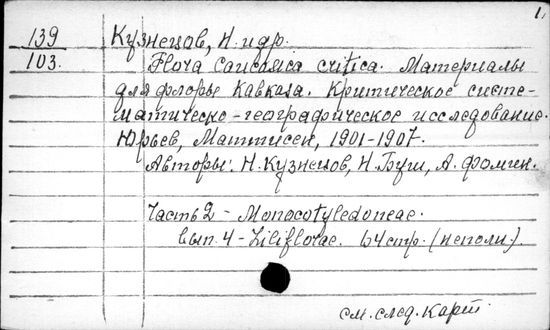 1.
139
103.
Кузнецов, Н. и др.
Flora Caucasica critica. Материалы
для флоры Кавказа. Критическое систе-
матическо-географическое исследование.
Юрьев, Маттисен, 1901-1907.
Авторы: Н. Кузнецов, Н. Буш, А. Фомин.
Часть 2 - Monocotyledoneae.
Вып. 4 - Liliflorae. 64 стр. (неполн.).
см. след. карт.